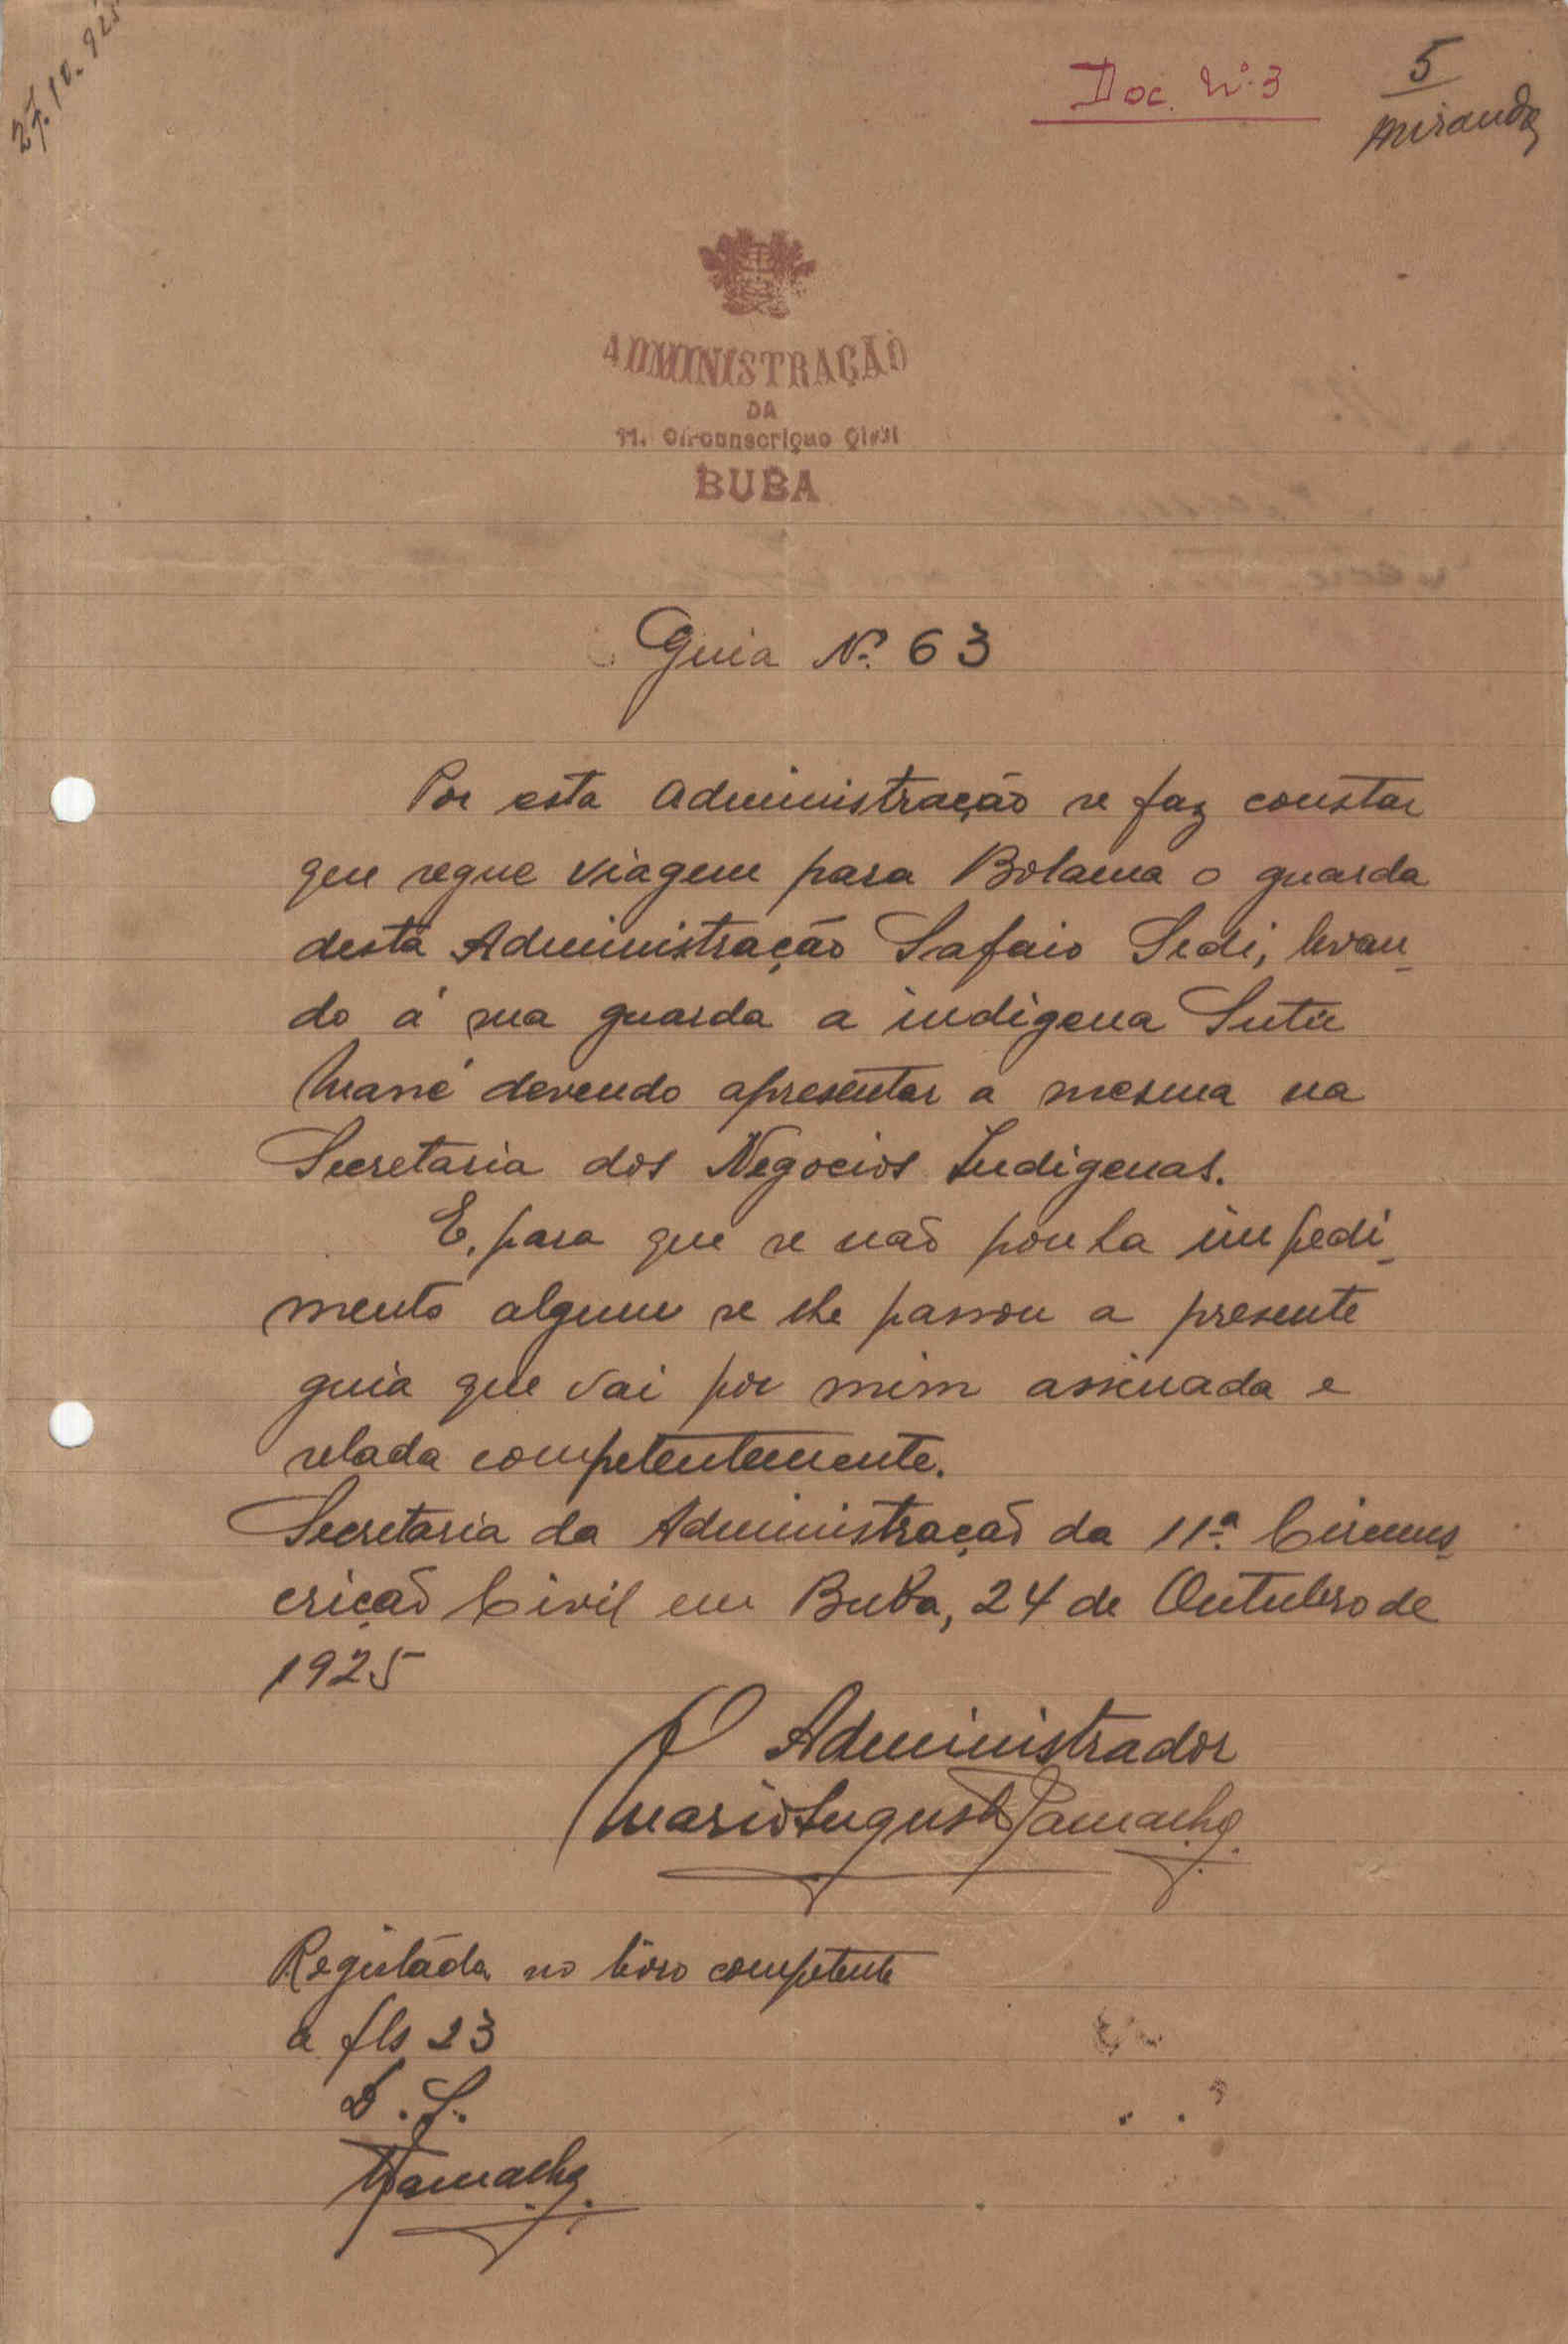 27.10.925
Doc. Nº 3
5
Miranda
ADMINISTRAÇÃO
DA
11. Circunscrição Civil
BUBA
Guia Nº 63
Por esta Administração se faz constar
que segue viagem para Bolama o guarda
desta Administração Safaio Sedi, levan-
do á sua guarda a indigena Sutu
Mané devendo apresentar a mesma na
Secretaria dos Negocios Indigenas.
E, para que se não ponha impedi-
mento algum se lhe passou a presente
guia que vai por mim assinada e
selada competentemente.
Secretaria da Administração da 11ª Circuns-
crição Civil em Buba, 24 de Outubro de
1925
O Administrador
Mario Augusto Camacho
Registáda no livro competente
a fls 23
D. S.
Camacho